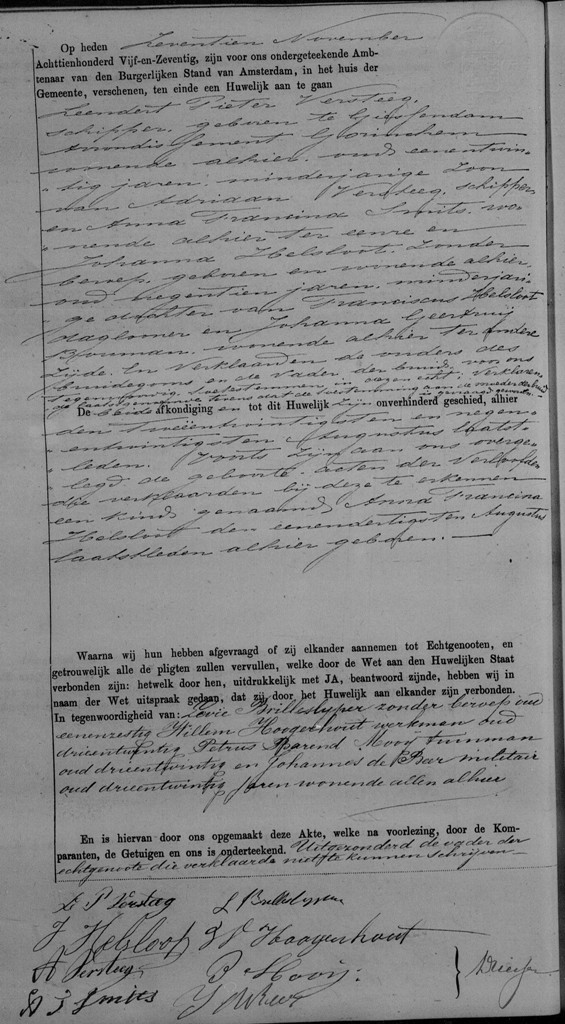 Op heden Zeventien November
Achttienhonderd Vijf-en-Zeventig, zijn voor ons ondergeteekende Amb-
tenaar van den Burgerlijken Stand van Amsterdam, in het huis der
Gemeente, verschenen, ten einde een Huwelijk aan te gaan
Leendert Pieter Versteeg,
schipper, geboren te Giessendam
Arrondissement Gorinchem
wonende alhier oud eenentwin-
tig jaren, minderjarige Zoon
van Adriaan Versteeg, schipper
en Anna Francina Smits, wo-
nende alhier ter eenre en
Johanna Helsloot zonder
beroep, geboren en wonende alhier,
oud negentien jaren, minderjari-
ge dochter van Franciscus Helsloot
daglooner en Johanna Geertruij
Bouman, wonende alhier ter andere
Zijde. En verklaarden de ouders des
bruidegoms en de vader der bruid voor ons
tegenwoordig toetestemmen in dezen echt, verklarende
De beide afkondiging en tot dit Huwelijk zijn onverhinderd geschied, alhier
den tweeëntwintigsten en negen-
entwintigsten Augustus laatst-
leden. Voorts zijn aan ons overge-
legd de geboorte acten der Verloofden
die verklaarden bij deze te erkennen
een kind genaamd Anna Francina
Helsloot den eenendertigsten Augustus
laatstleden alhier geboren.
Waarna wij hun hebben afgevraagd of zij elkander aannemen tot Echtgenooten, en
getrouwelijk alle de pligten zullen vervullen, welke door de Wet aan den Huwelijken Staat
verbonden zijn: hetwelk door hen, uitdrukkelijk met JA, beantwoord zijnde, hebben wij in
naam der Wet uitspraak gedaan, dat zij door het Huwelijk aan elkander zijn verbonden.
In tegenwoordigheid van: Levie Brilleslyper zonder beroep oud
eenenzestig Willem Hoogerhout werkman oud
drieentwintig Petrus Barend Mooij tuinman
oud drieentwintig en Johannes de Beer militair
oud drieentwintig jaren wonende allen alhier
En is hiervan door ons opgemaakt deze Akte, welke na voorlezing, door de Kom-
paranten, de Getuigen en ons is onderteekend. Uitgezonderd de vader der
echtgenoote die verklaarde niet te kunnen schrijven
L P Versteeg L Brilleslyper
J Helsloot W Hoogerhout
A Versteeg P Mooij
A F Smits J de Beer